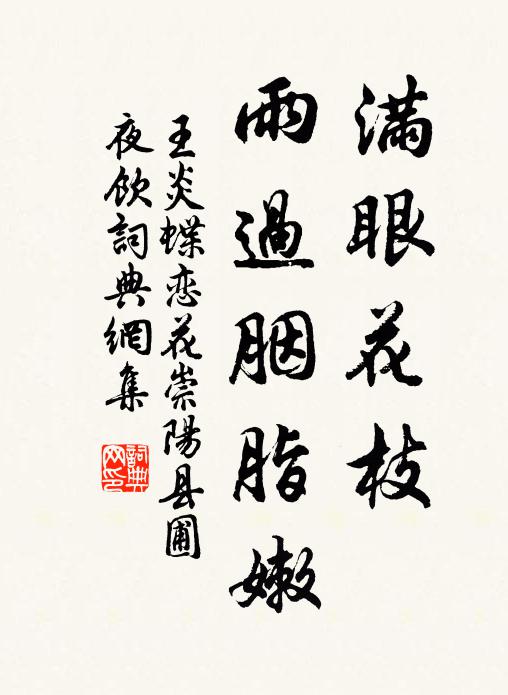 滿眼花枝
雨過胭脂嫩
王炎蝶恋花崇陽县圃
夜飲詞典網集
詞典网印